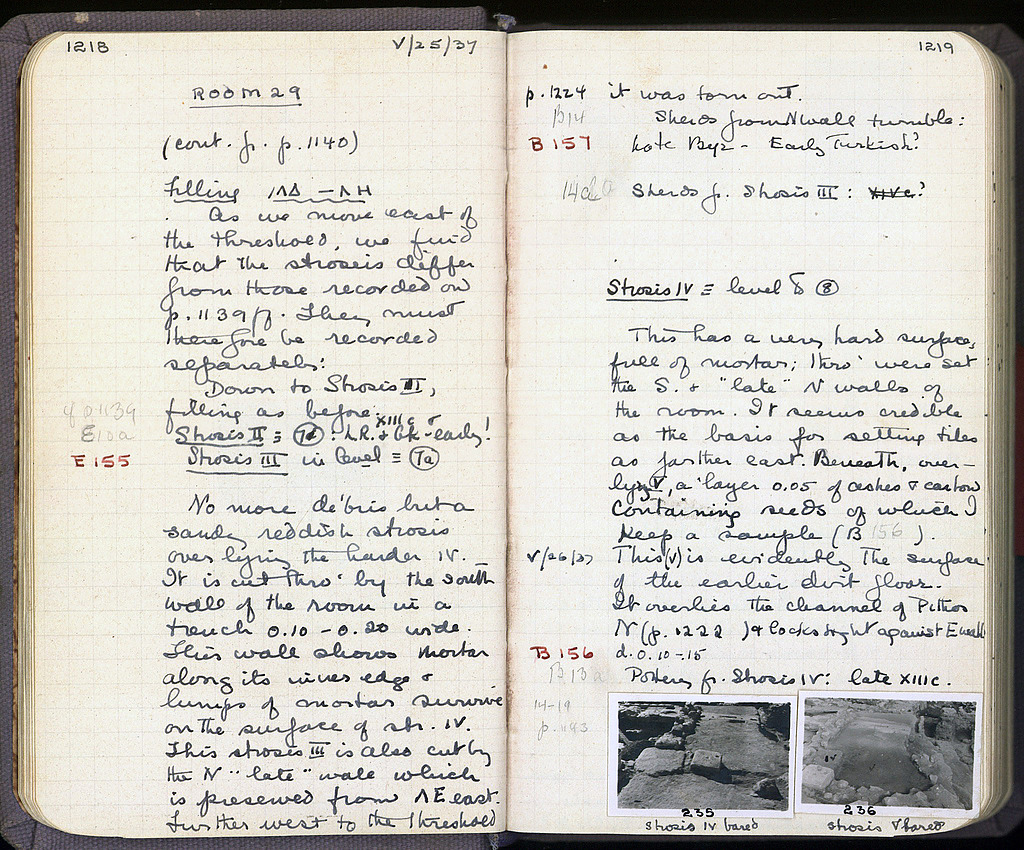 1218
V/25/37
ROOM 29
(cont. f. p. 1140)
Filling ΛΔ – ΛΗ
As we move east of
the threshold, we find
that the stroseis differ
from those recorded on
p. 1139 ff. They must
therefore be recorded
separately:
Down to Strosis III,
filling as before.
XIII c
Strosis II ≡ 7d : L.R. & Gk - early!
E 155
Strosis III in level ≡ 7a
No more débris but a
sandy reddish strosis
overlying the harder IV.
It is cut thro' by the south
wall of the room in a
trench 0.10 – 0.20 wide.
This wall shows mortar
along its inner edge &
lumps of mortar survive
on the surface of str. IV.
This strosis III is also cut by
the N "late" wall which
is preserved from ΛE east.
Further west to the threshold
1219
p. 1224 it was torn out.
B14
Sherds from N wall tumble:
B 157
Late Byz - Early Turkish?
Sherds f. Strosis III : XIVc?
Strosis IV ≡ level 8 ⑧
This has a very hard surface,
full of mortar; thro' were set
the S. & "late" N walls of
the room. It seems credible
as the basis for setting tiles
as farther east. Beneath, over-
lying V, a layer 0.05 of ashes & carbon
containing seeds of which I
keep a sample (B 156 ).
V/26/37
This (V) is evidently the surface
of the earlier dirt floor.
It overlies the channel of Pithos
N (p. 1222 ) & locks tight against E wall
B 156
d. 0.10 - .15
B13a
Pottery f. Strosis IV: late XIIIc.
14-19
p. 1183
IV
235
Strosis IV bared
236
Strosis V bared